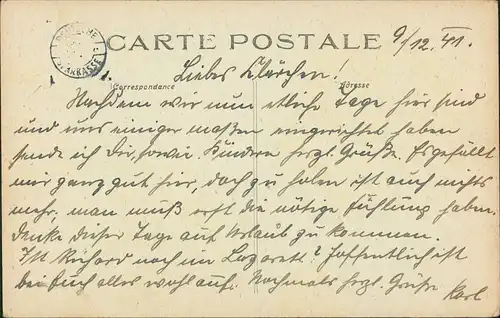 DEUTSCHE SPARKASSE
CARTE POSTALE
9/12. 41.
Liebes Klärchen!
Correspondance
Adresse
Nachdem wir nun etliche Tage hier sind
und uns einiger maßen eingerichtet haben
sende ich Dir, sowie Kindern herzl. Grüße. Es gefällt
mir ganz gut hier, doch zu holen ist auch nichts
mehr, man muß erst die nötige Fühlung haben.
Denke dieser Tage auf Urlaub zu kommen.
Ist Richard noch im Lazarett? Hoffentlich ist
bei Euch alles wohlauf. Nochmals herzl. Grüße
Karl